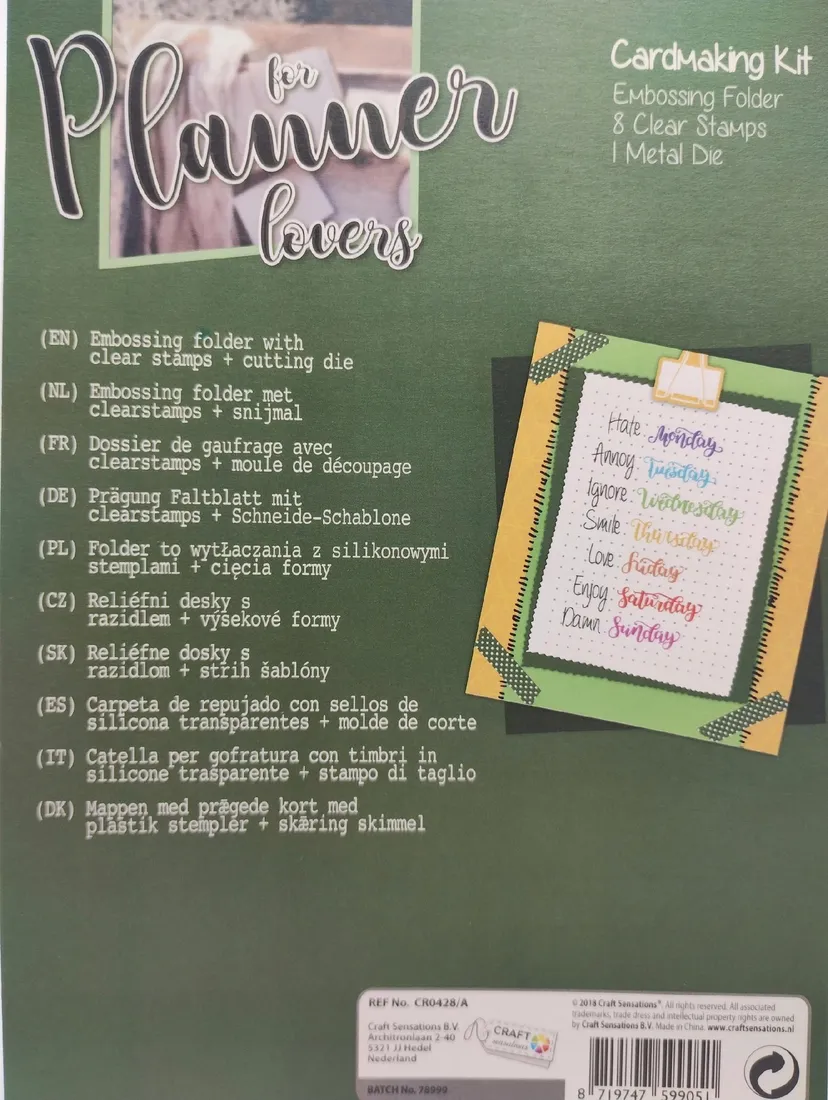 for
Planner
lovers
Cardmaking Kit
Embossing Folder
8 Clear Stamps
1 Metal Die
(EN) Embossing folder with
clear stamps + cutting die
(NL) Embossing folder met
clearstamps + snijmal
(FR) Dossier de gaufrage avec
clearstamps + moule de découpage
(DE) Prägung Faltblatt mit
clearstamps + Schneide-Schablone
(PL) Folder to wytŁaczania z silikonowymi
stemplami + cięcia formy
(CZ) Reliéfni desky s
razidlem + výsekové formy
(SK) Reliéfne dosky s
razidlom + strih šablóny
(ES) Carpeta de repujado con sellos de
silicona transparentes + molde de corte
(IT) Catella per gofratura con timbri in
silicone trasparente + stampo di taglio
(DK) Mappen med prægede kort med
plastik stempler + skæring skimmel
Hate Monday
Annoy Tuesday
Ignore Wednesday
Smile Thursday
Love Friday
Enjoy Saturday
Damn Sunday
REF No. CR0428/A
Craft Sensations B.V.
Architronlaan 2-40
5321 JJ Hedel
Nederland
BATCH No. 78999
CRAFT
© 2018 Craft Sensations®. All rights reserved. All associated
trademarks, trade dress and intellectual property rights are owned
by Craft Sensations B.V. Made in China. www.craftsensations.nl
8 719747 599051